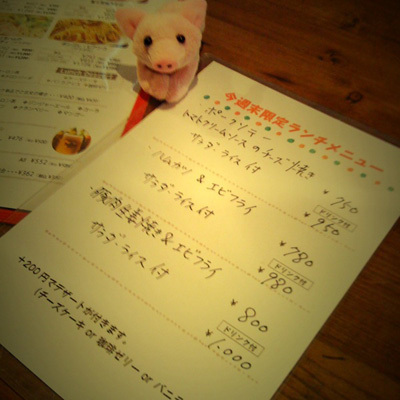 今週末限定ランチメニュー
ポークソテー
トマトクリームソースのチーズ焼き
サラダ・ライス付
¥750
ドリンク付
¥950
ハムカツ & エビフライ
サラダ・ライス付
¥780
ドリンク付
¥980
豚肉生姜焼き & エビフライ
サラダ・ライス付
¥800
ドリンク付
¥1,000
+200円でデザートが付きます。
(チーズケーキ or 珈琲ゼリー or バニラ